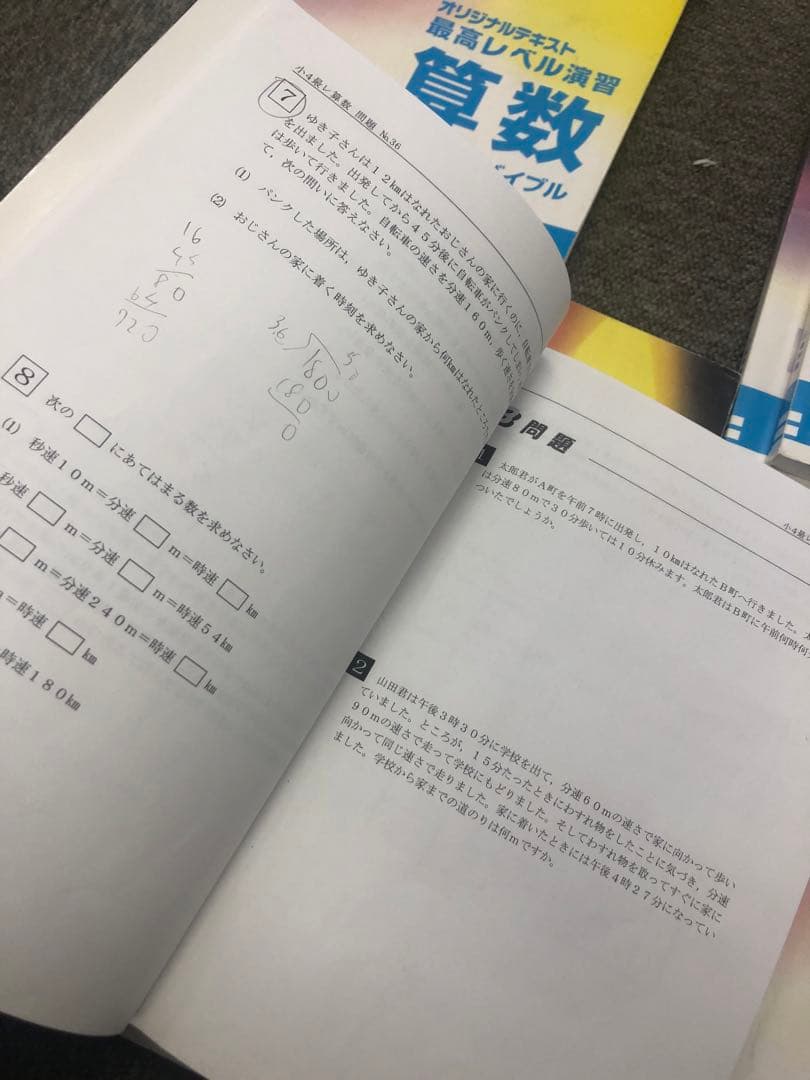 オリジナルテキスト
最高レベル演習
算数
バイブル
小4最レ算数 問題 №36
7
ゆき子さんは12kmはなれたおじさんの家に行くのに、自転
を出ました。出発してから45分後に自転車がパンクしてしま
は歩いて行きました。自転車の速さを分速160m、歩く速さを
て、次の問いに答えなさい。
(1) パンクした場所は、ゆき子さんの家から何kmはなれたところ
(2) おじさんの家に着く時刻を求めなさい。
16
45
80
64
720
36 1800
180
0
8 次の□にあてはまる数を求めなさい。
(1) 秒速10m=分速□m=時速□km
秒速□m=分速□m=時速54km
□m=分速240m=時速□km
=時速□km
時速180km
問題
小4最レ
1 太郎君がA町を午前7時に出発し、10kmはなれたB町へ行きました。
は分速80mで30分歩いては10分休みます。太郎君はB町に午前何時何
ついたでしょうか。
2 山田君は午後3時30分に学校を出て、分速60mの速さで家に向かって歩い
ていました。ところが、15分たったときにわすれ物をしたことに気づき、分速
90mの速さで走って学校にもどりました。そしてわすれ物を取ってすぐに家に
向かって同じ速さで走りました。家に着いたときには午後4時27分になってい
ました。学校から家までの道のりは何mですか。